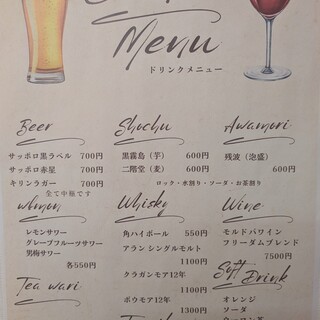 Menu
ドリンクメニュー
Beer
サッポロ黒ラベル 700円
サッポロ赤星 700円
キリンラガー 700円
全て中瓶です
Shochu
黒霧島（芋） 600円
二階堂（麦） 600円
ロック・水割り・ソーダ・お茶割り
Awamori
残波（泡盛）
600円
レモンサワー
グレープフルーツサワー
男梅サワー
各550円
Tea wari
Whisky
角ハイボール 550円
アラン シングルモルト
1100円
クラガンモア12年
1100円
ボウモア12年
1300円
Wine
モルドバワイン
フリーダムブレンド
7500円
Soft Drink
オレンジ
ソーダ
ウーロン茶